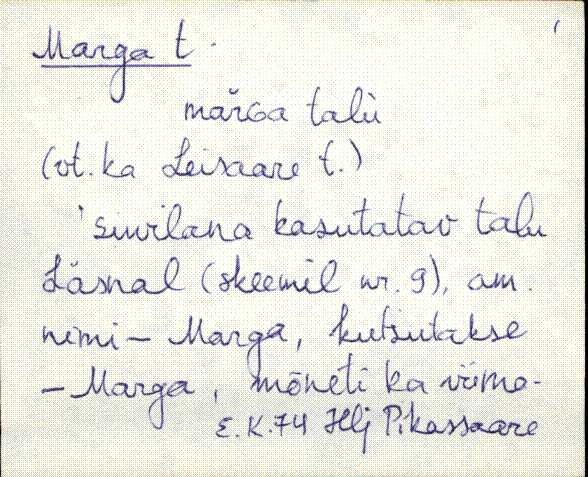 Marga t.
marɢa talu
(vt. ka Leisaare t.)
'suvilana kasutatav talu
Läsnal (skeemil nr. 9), am.
nimi – Marga, kutsutakse
– Marga, mõneti ka viima-
E.K.74 Hlj Pikassaare